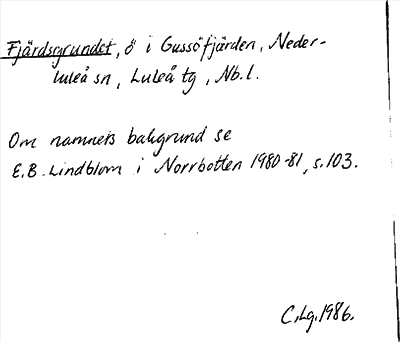 Fjärdsgrundet, ö i Gussöfjärden, Neder-
luleå sn, Luleå tg, Nb.l.
Om namnets bakgrund se
E.B. Lindblom i Norrbotten 1980-81, s.103.
C.Lg.1986.